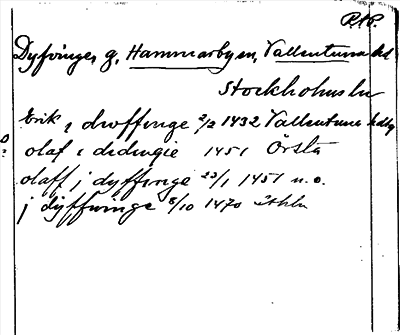 P.A.P.
Dyfvinge, g, Hammarby sn, Vallentuna hd
Stockholms ln
Erik i droffinge 2/2 1432 Vallentuna hdg
olaf i didingie 1451 Örsta
olaff j dyffinge 23/1 1451 n.o.
j dyffwinge 8/10 1470 Sthlm